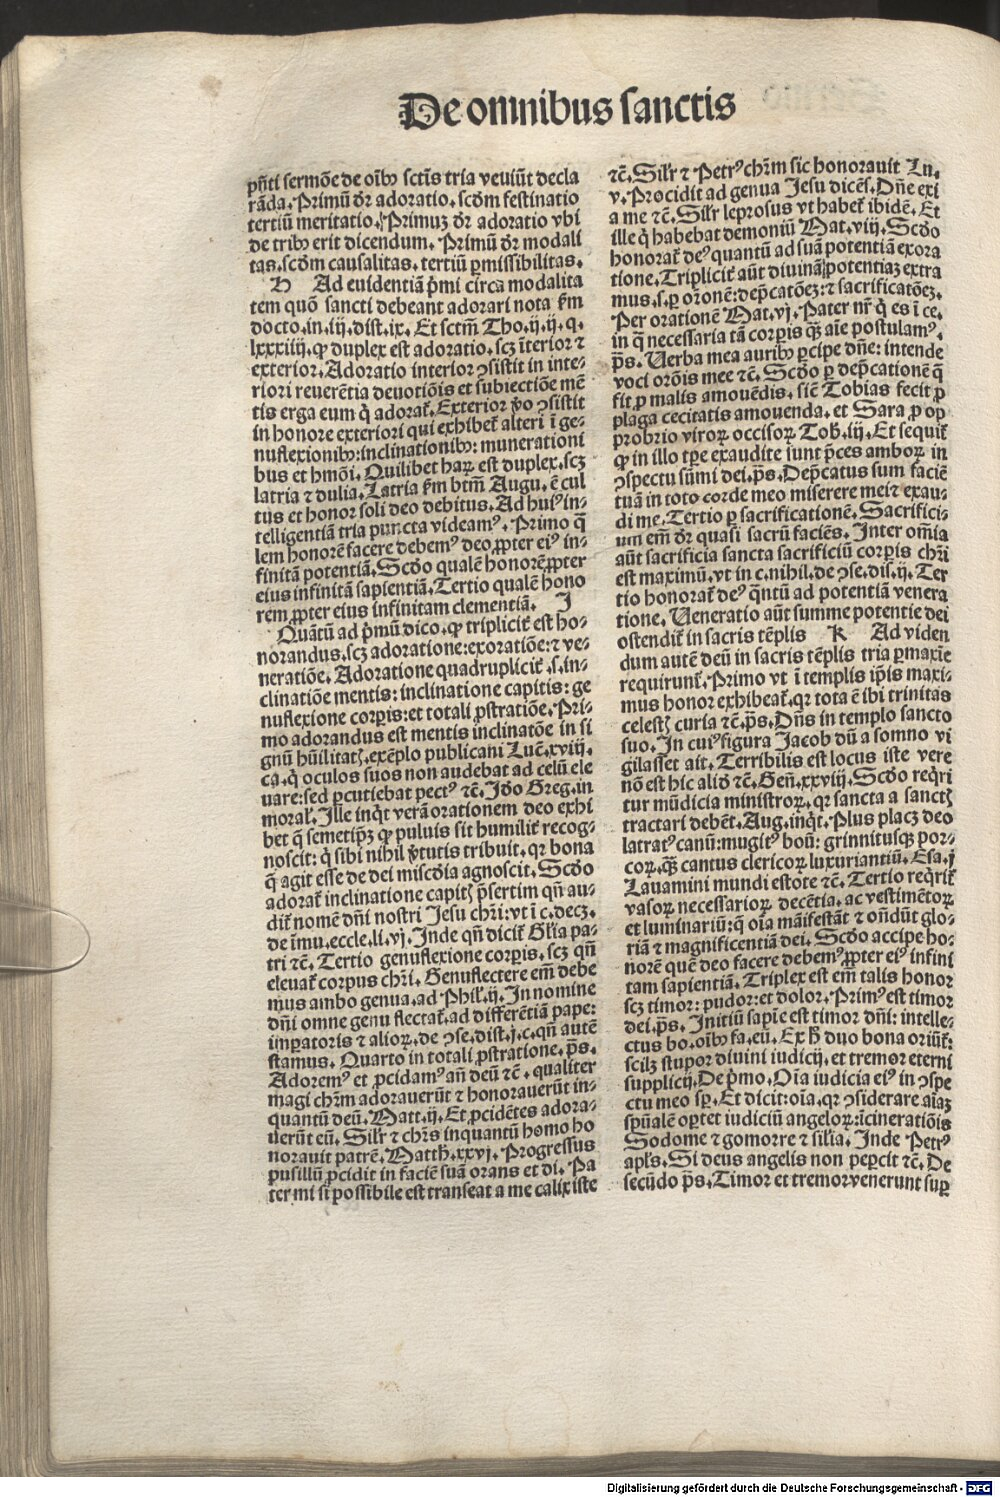 De omnibus sanctis
pñti sermōe de oībꝰ sctīs tria veniūt decla
rāda. Primū dr̄ adoratio. scd̄m festinatio
tertiū meritatio. Primuz dr̄ adoratio vbi
de tribꝰ erit dicendum. Primū dr̄ modali
tas. scd̄m causalitas. tertiū ꝑmissibilitas.
H Ad euidentiā p̄mi circa modalita
tem quō sancti debeant adorari nota ẜm
docto. in. iij. dist. ix. Et sctm̄ Tho. ij. ij. q.
lxxxiiij. ꝙ duplex est adoratio. scꝫ īterior ⁊
exterior. Adoratio interior ꝯsistit in inte⸗
riori reuerētia deuotiōis et subiectiōe mē
tis erga eum q̄ adorat̄. Exterior ꝟo ꝯsistit
in honore exteriori qui exhibet̄ alteri ī ge⸗
nuflexionibꝰ: inclinationibꝰ: munerationi
bus et hmōi. Quilibet haꝝ est duplex. scꝫ
latria ⁊ dulia. Latria ẜm btm̄ Augu. ē cul
tus et honor soli deo debitus. Ad huiꝰ in⸗
telligentiā tria puncta videamꝰ. Primo q̄
lem honorē facere debemꝰ deo ꝓpter eiꝰ in⸗
finitā potentiā. Scd̄o qualē honorē ꝓpter
eius infinitā sapientiā. Tertio qualē hono
rem ꝓpter eius infinitam clementiā. J
Quātū ad p̄mū dico. ꝙ tripliciť est ho⸗
norandus. scꝫ adoratione: exoratiōe: ⁊ ve⸗
neratiōe. Adoratione quadrupliciť .s. in⸗
clinatiōe mentis: inclinatione capitis: ge
nuflexione corꝑis: et totali ꝓstratiōe. Pri⸗
mo adorandus est mentis inclinatōe in si
gnū hūilitatꝭ. exēplo publicani Luč. xviij.
ca. q̄ oculos suos non audebat ad celū ele
uare: sed ꝑcutiebat pectꝰ ⁊č. Jd̄o Greg. in
moraľ. Jlle inq̄t verā orationem deo exhi
bet q̄ semetip̄ꝫ ꝙ puluis sit humiliť recog⸗
noscit: q̄ sibi nihil ꝟtutis tribuit. qꝛ bona
q̄ agit esse de dei misc̄dia agnoscit. Scd̄o
adorat̄ inclinatione capitꝭ p̄sertim qn̄ au⸗
dit̄ nomē dn̄i nostri Jesu chr̄i: vt ī c. decꝫ.
de īmu. eccle. li. vj. Jnde qn̄ dicit̄ Glīa pa⸗
tri ⁊č. Tertio genuflexione corꝑis. scꝫ qn̄
eleuat̄ corpus chr̄i. Genuflectere em̄ debe
mus ambo genua. ad Phiľ. ij. Jn nomine
dn̄i omne genu flectat̄. ad differētiā pape:
imꝑatoris ⁊ alioꝝ. de ꝯse. dist. j. c. qn̄ autē
stamus. Quarto in totali ꝓstratione. p̄s.
Adoremꝰ et ꝓcidamꝰ an̄ deū ⁊č. qualiter
magi chr̄m adorauerūt ⁊ honorauerūt in⸗
quantū deū. Matt. ij. Et ꝓcidētes adora⸗
uerūt eū. Siľr ⁊ chr̄s inquantū homo ho
norauit patrē. Matth. xxvj. Progressus
pusillū ꝓcidit in faciē suā orans et di. Pa
ter mi si possibile est transeat a me calix iste
⁊č. Siľr ⁊ Petrꝰ chr̄m sic honorauit Lu.
v. Procidit ad genua Jesu dicēs. Dn̄e exi
a me ⁊č. Siľr leprosus vt habet̄ ibidē. Et
ille q̄ habebat demoniū Mat. viij. Scd̄o
honorat̄ deꝰ quantū ad suā potentiā exora
tione. Tripliciť aūt diuinā potentiaꝫ extra
mus .s. ꝑ or̄onē: dep̄catōeꝫ: ⁊ sacrificatōeꝫ.
Per orationē Mat. vj. Pater nr̄ q̄ es ī ce.
in q̄ necessaria tā corꝑis qꝫ aīe postulamꝰ.
p̄s. Uerba mea auribꝰ ꝑcipe dn̄e: intende
voci orōis mee ⁊č. Scd̄o ꝑ dep̄cationē q̄
fit ꝓ malis amouēdis. sicē Tobias fecit ꝓ
plaga cecitatis amouenda. et Sara ꝓ op
probrio viroꝝ occisoꝝ Tob̄. iij. Et sequit̄
ꝙ in illo tꝑe exaudite sunt p̄ces amboꝝ in
ꝯspectu sūmi dei. p̄s. Dep̄catus sum faciē
tuā in toto corde meo miserere mei ⁊ exau⸗
di me. Tertio ꝑ sacrificationē. Sacrifici⸗
um em̄ dr̄ quasi sacrū faciēs. Jnter om̄ia
aūt sacrificia sancta sacrificiū corꝑis chr̄i
est maximū. vt in c. nihil. de ꝯse. dis. ij. Ter
tio honorat̄ deꝰ q̄ntū ad potentiā venera
tione. Ueneratio aūt summe potentie dei
ostendit̄ in sacris tēplis K Ad viden
dum autē deū in sacris tēplis tria ꝑmaxīe
requirunt̄. Primo vt ī templis ip̄is maxi⸗
mus honor exhibeat̄. qꝛ tota ē ibi trinitas
celestꝭ curia ⁊č. p̄s. Dn̄s in templo sancto
suo. Jn cuiꝰ figura Jacob dū a somno vi
gilasset ait. Terribilis est locus iste vere
nō est hic aliđ ⁊č. Gen̄. xxviij. Scd̄o req̄ri
tur mūdicia ministroꝝ. qꝛ sancta a sanctꝭ
tractari debēt. Aug. inq̄t. Plus placꝫ deo
latratꝰ canū: mugitꝰ boū: grinnitusqꝫ por⸗
coꝝ. qꝫ cantus clericoꝝ luxuriantiū. Esa. j
Lauamini mundi estote ⁊č. Tertio req̄rit̄
vasoꝝ necessarioꝝ decētia. ac vestimētoꝝ
et luminariū: q̄ oīa māifestāt ⁊ on̄dūt glo⸗
riā ⁊ magnificentiā dei. Scd̄o accipe ho⸗
norē quē deo facere debemꝰ ꝓpter eiꝰ infini
tam sapientiā. Triplex est em̄ talis honor
scꝫ timor: pudor: et dolor. Primꝰ est timor
dei. p̄s. Jnitiū sapīe est timor dn̄i: intelle⸗
ctus bo. oībꝰ fa. eū. Ex h̄ duo bona oriūt̄:
scilꝫ stupor diuini iudicij. et tremor eterni
supplicij. De p̄mo. Oīa iudicia eiꝰ in ꝯspe
ctu meo sꝑ. Et dicit: oīa. qꝛ ꝯsiderare aīaꝫ
sp̄ualē oꝑtet iudiciū angeloꝝ: īcineratiōis
Sodome ⁊ gomorre ⁊ silīa. Jnde Petrꝰ
apľs. Si deus angelis non peꝑcit ⁊č. De
secūdo p̄s. Timor et tremor venerunt suꝑ
Digitalisierung gefördert durch die Deutsche Forschungsgemeinschaft - DFG